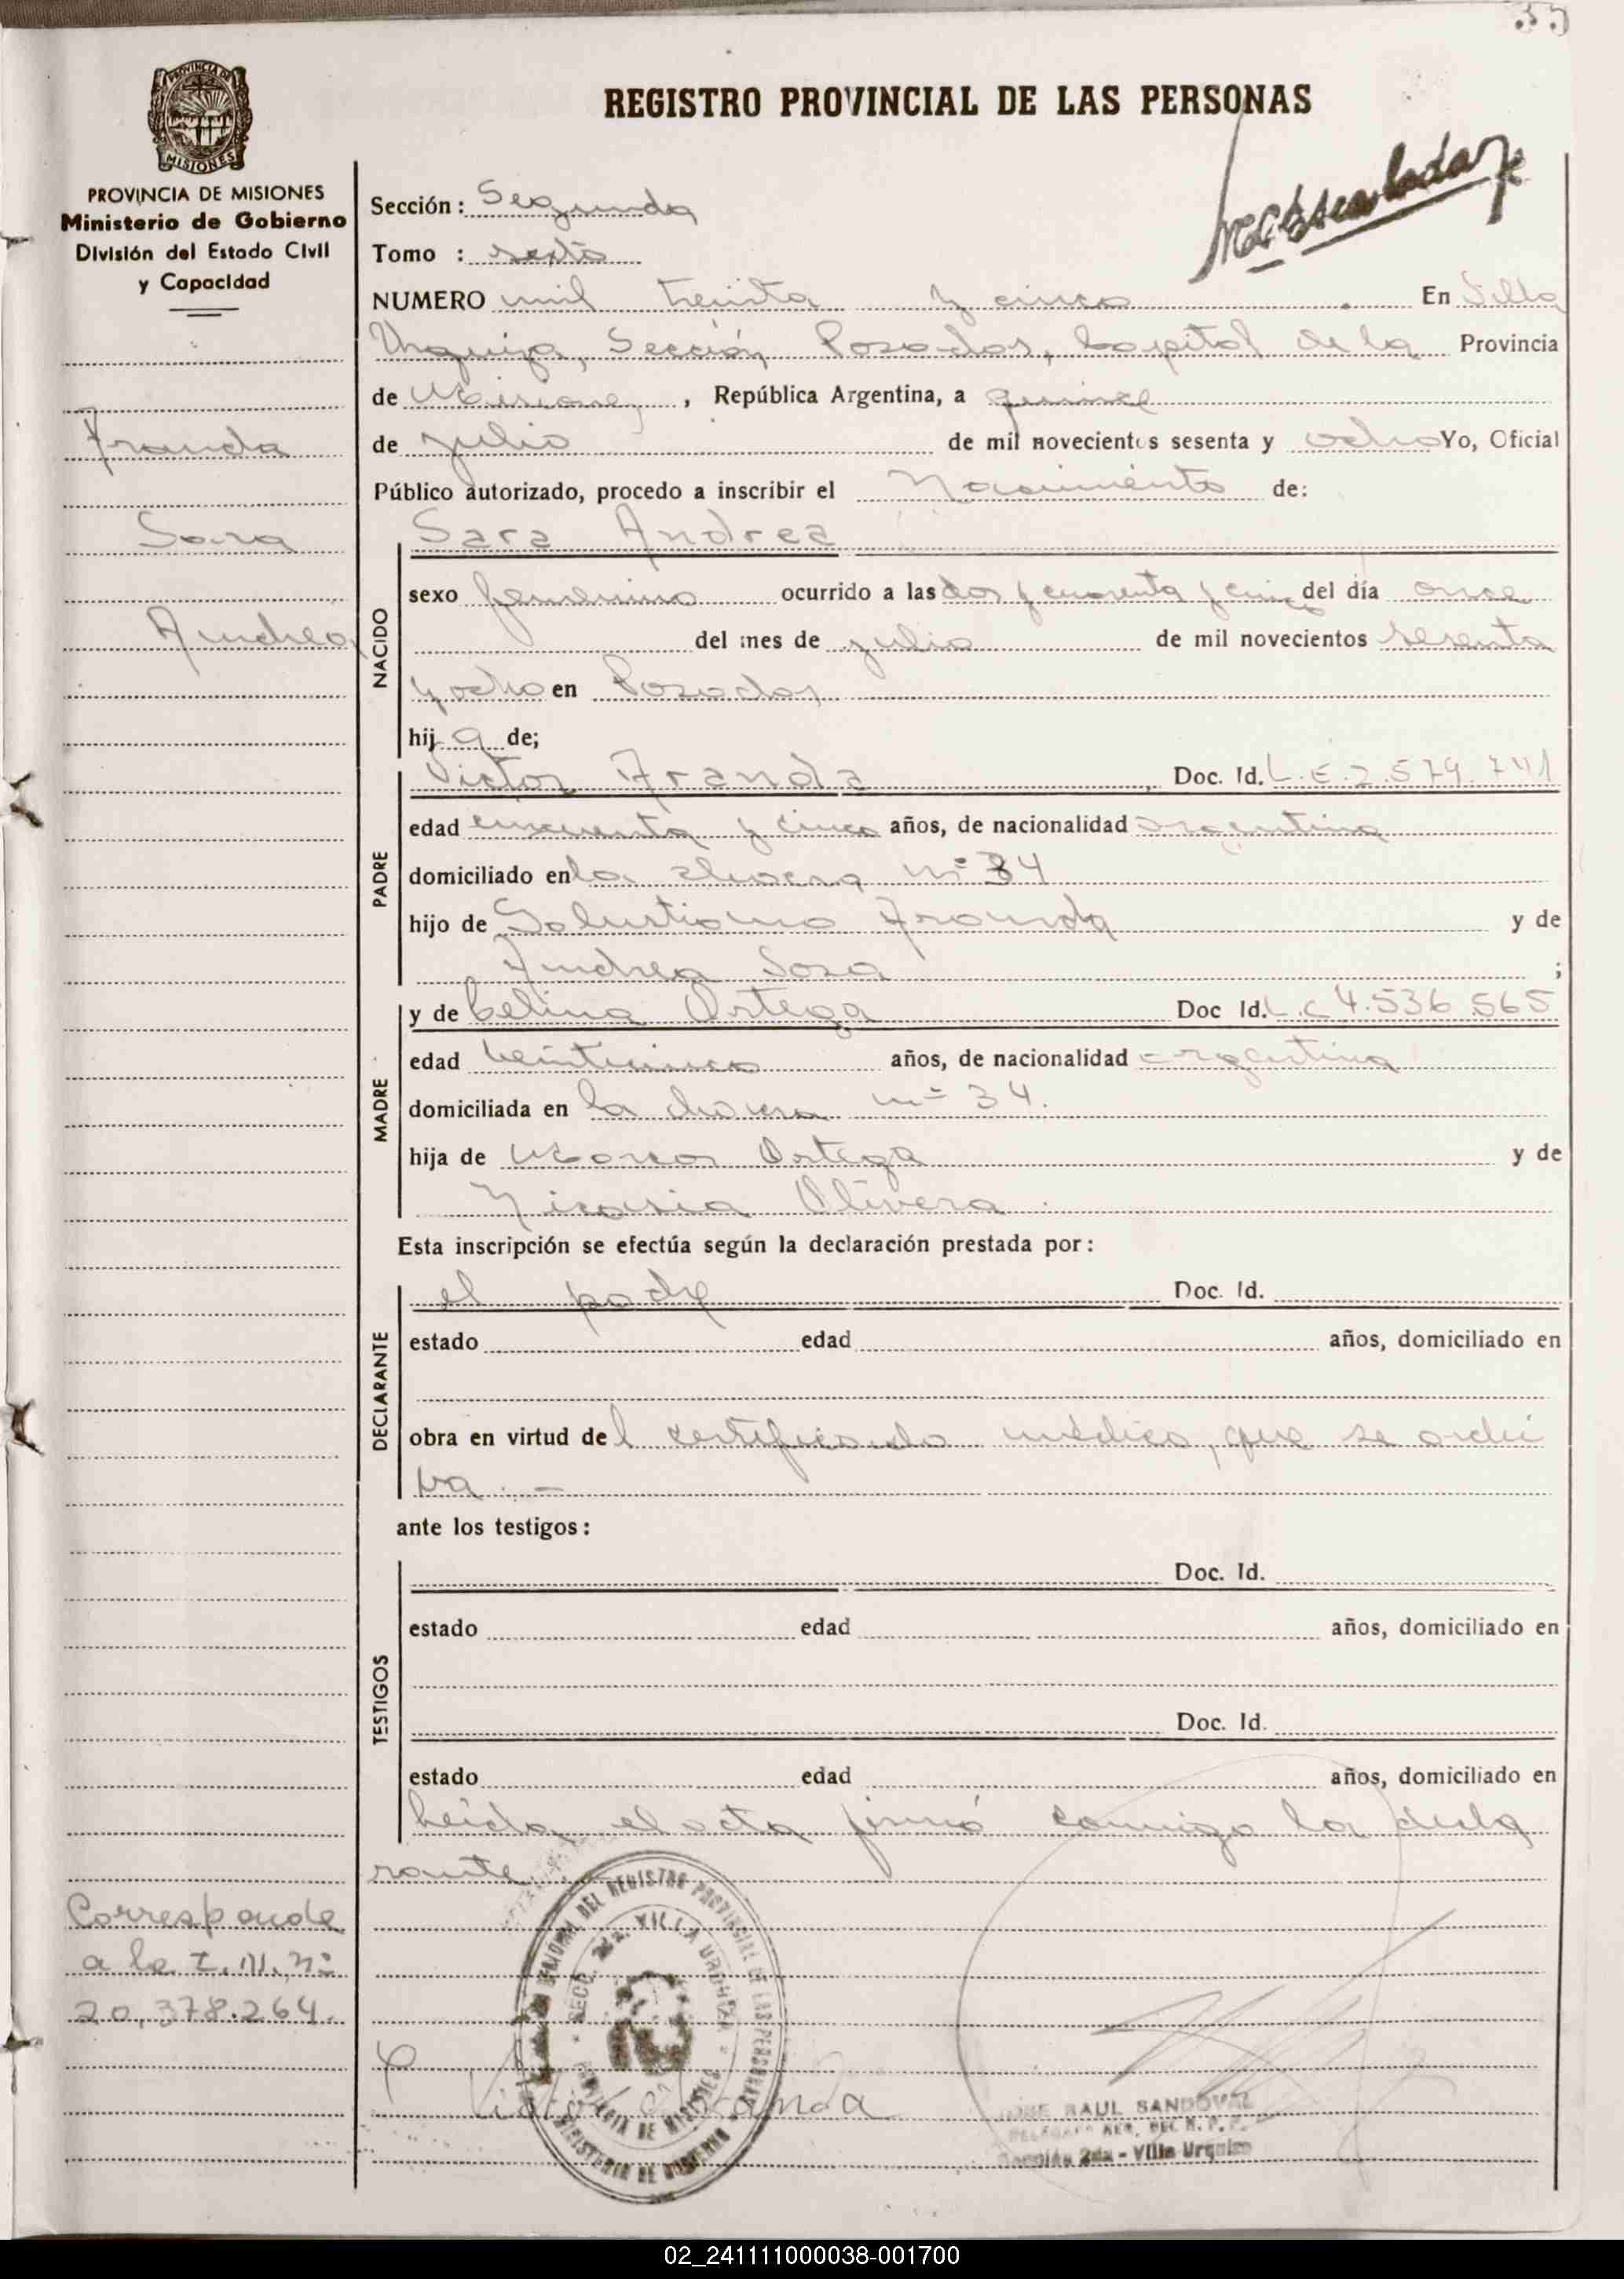 35
REGISTRO PROVINCIAL DE LAS PERSONAS
PROVINCIA DE MISIONES
Ministerio de Gobierno
División del Estado Civil
y Capacidad
Aranda
Sara
Andrea
Sección: Segunda
Tomo : sexto
NUMERO mil treinta y cinco En Villa
Urquiza, Sección Posadas, Capital de la Provincia
de Misiones, República Argentina, a quince
de julio de mil novecientos sesenta y ocho Yo, Oficial
Público autorizado, procedo a inscribir el Nacimiento de:
NACIDO
Sara Andrea
sexo femenino ocurrido a las dos y cuarenta y cinco del día once
del mes de julio de mil novecientos sesenta
y ocho en Posadas
hija de;
PADRE
Victor Aranda Doc. Id. L.E.2.579.741
edad cincuenta y cinco años, de nacionalidad argentina
domiciliado en la chacra nº 34
hijo de Salustiano Aranda y de
Andrea Sosa ;
MADRE
y de Celina Ortega Doc Id. L.C 4.536.565
edad veinticinco años, de nacionalidad argentina
domiciliada en la chacra nº 34.
hija de Marcos Ortega y de
Nicasia Olivera
Esta inscripción se efectúa según la declaración prestada por:
DECLARANTE
el padre Doc. Id.
estado edad años, domiciliado en
obra en virtud del certificado médico, que se archi
va.-
ante los testigos:
TESTIGOS
Doc. Id.
estado edad años, domiciliado en
Doc. Id.
estado edad años, domiciliado en
Leída el acta firmó conmigo la decla
rante
Corresponde
a la I.M. nº
20.378.264.
Victor Aranda
JOSE RAUL SANDOVAL
Sección 2da - Villa Urquiza
02_241111000038-001700